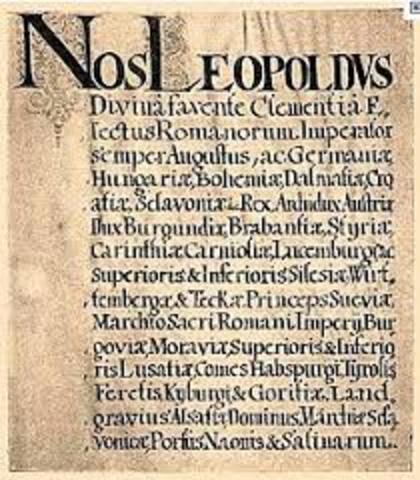 NOS LEOPOLDVS
Divinâ favente Clementiâ E,
lectus Romanorum Imperator
semper Augustus, ac Germaniæ,
Hungariæ, Bohemiæ, Dalmatiæ, Cro
atiæ, Sclavoniæ Rex, Archidux Austriæ
Dux Burgundiæ, Brabantiæ, Styriæ,
Carinthiæ Carnioliæ, Luxemburgi, ac
Superioris & Inferioris Silesiæ, Wirt,
tembergæ, & Teckæ, Princeps Sueviæ,
Marchio Sacri Romani Imperij Bur
goviæ, Moraviæ, Superioris & Inferio
ris Lusatiæ, Comes Habspurgi, Tyrolis
Feretis, Kyburgi, & Goritiæ, Land,
gravius Alsatiæ, Dominus, Marchiæ Scla,
vonicæ, Portus Naonis & Salinarum.